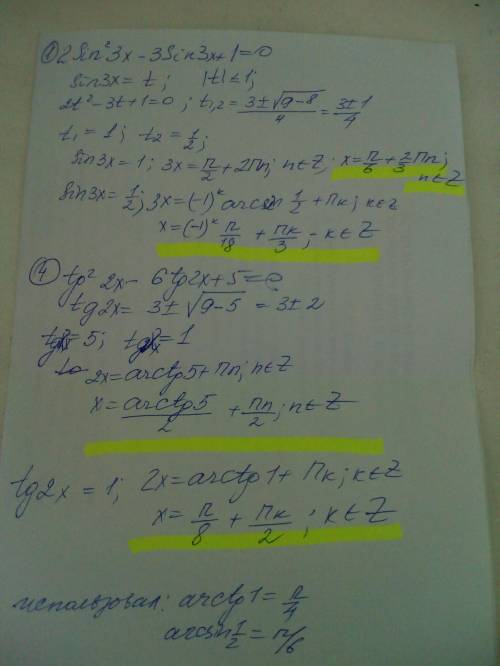 ① 2Sin²3x - 3Sin3x + 1 = 0
Sin3x = t; |t| ≤ 1;
2t² - 3t + 1 = 0; t₁,₂ = (3 ± √(9-8))/4 = (3 ± 1)/4
t₁ = 1; t₂ = 1/2;
Sin3x = 1; 3x = π/2 + 2πn; n∈Z; x = π/6 + 2/3 πn;
n∈Z
Sin3x = 1/2; 3x = (-1)ᵏ arcsin 1/2 + πk; k∈Z
x = (-1)ᵏ π/18 + πk/3; k∈Z
④ tg²2x - 6tg2x + 5 = 0
tg2x = 3 ± √(9-5) = 3 ± 2
= 5; = 1
2x = arctg5 + πn; n∈Z
x = arctg5/2 + πn/2; n∈Z
tg2x = 1; 2x = arctg1 + πk; k∈Z
x = π/8 + πk/2; k∈Z
использовал: arctg1 = π/4
arcsin 1/2 = π/6